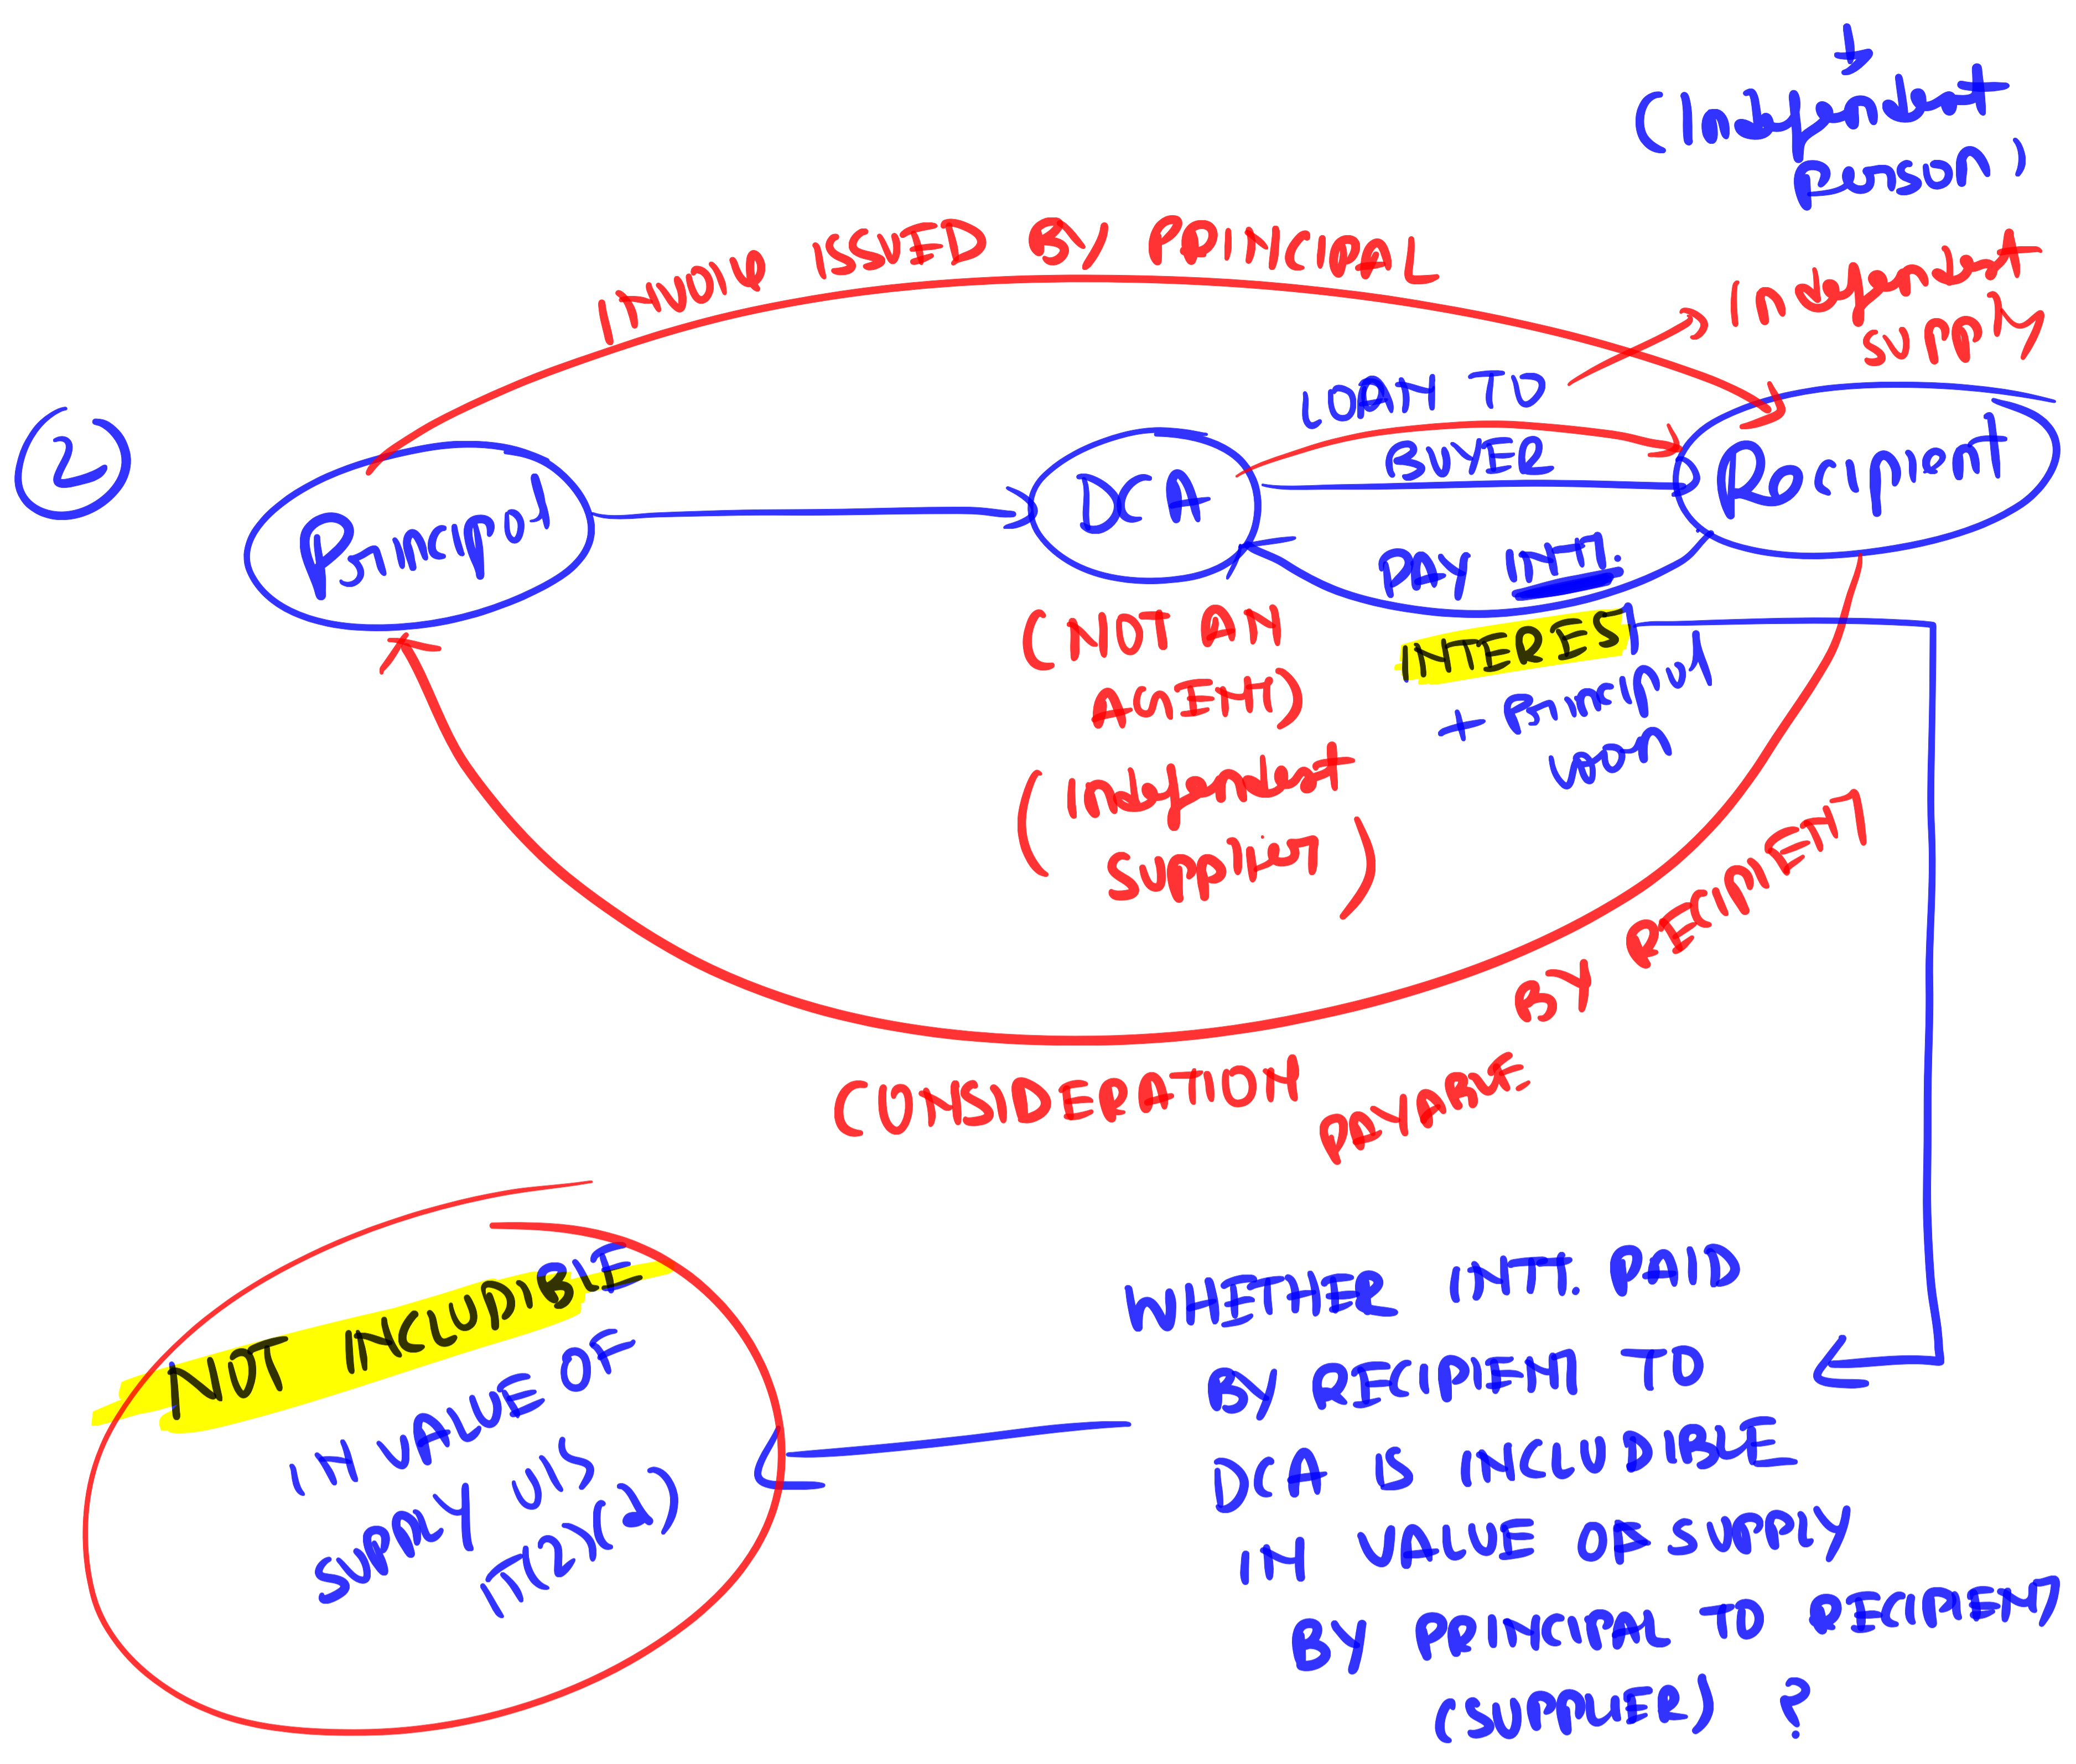 (Independent
Person)
INVOICE ISSUED BY PRINCIPAL
Independent
supply
2
Principal
DCA
LOAN TO
BUYER
Recipient
PAY INTT.
INTEREST
+ Principal
loan
(NOT AN
AGENT)
(Independent
supplier)
CONSIDERATION PAYABLE BY RECIPIENT
NOT INCLUDIBLE
IN VALUE OF
SUPPLY U/S
15(2)(d)
WHETHER INTT. PAID
BY RECIPIENT TO
DCA IS INCLUDIBLE
IN VALUE OF SUPPLY
BY PRINCIPAL TO RECIPIENT
(SUPPLIER) ?